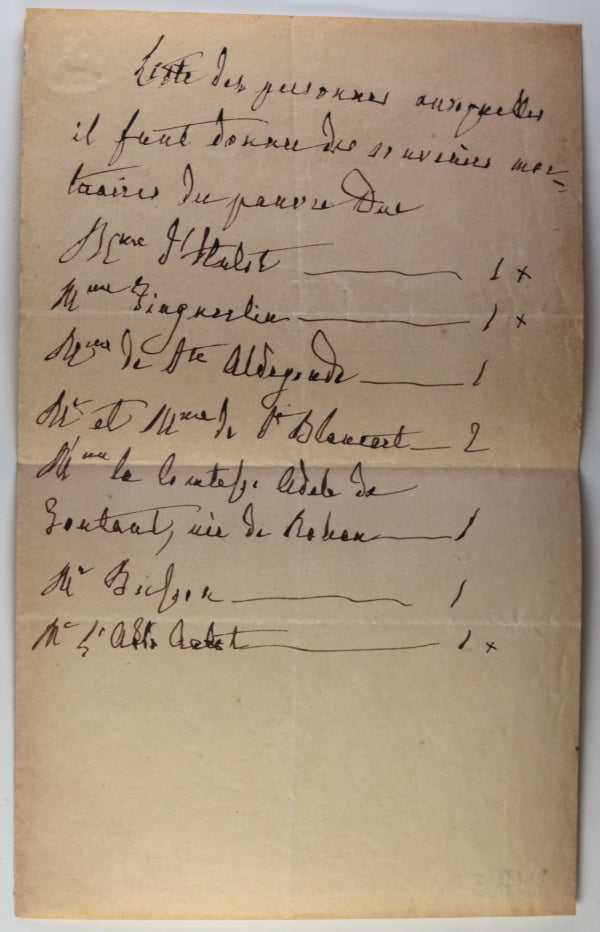 Liste des personnes auxquelles
il faut donner des souvenirs mor=
tuaires du pauvre Duc
Bnne d'Hulst — 1 x
Mme — 1 x
Mme de Ste Aldegonde — 1
Mr et Mme de St Blancart — 2
Mme la Comtesse Adèle de
Gontaut, née de Rohan — 1
Mr — 1
Mr l'Abbé — 1 x